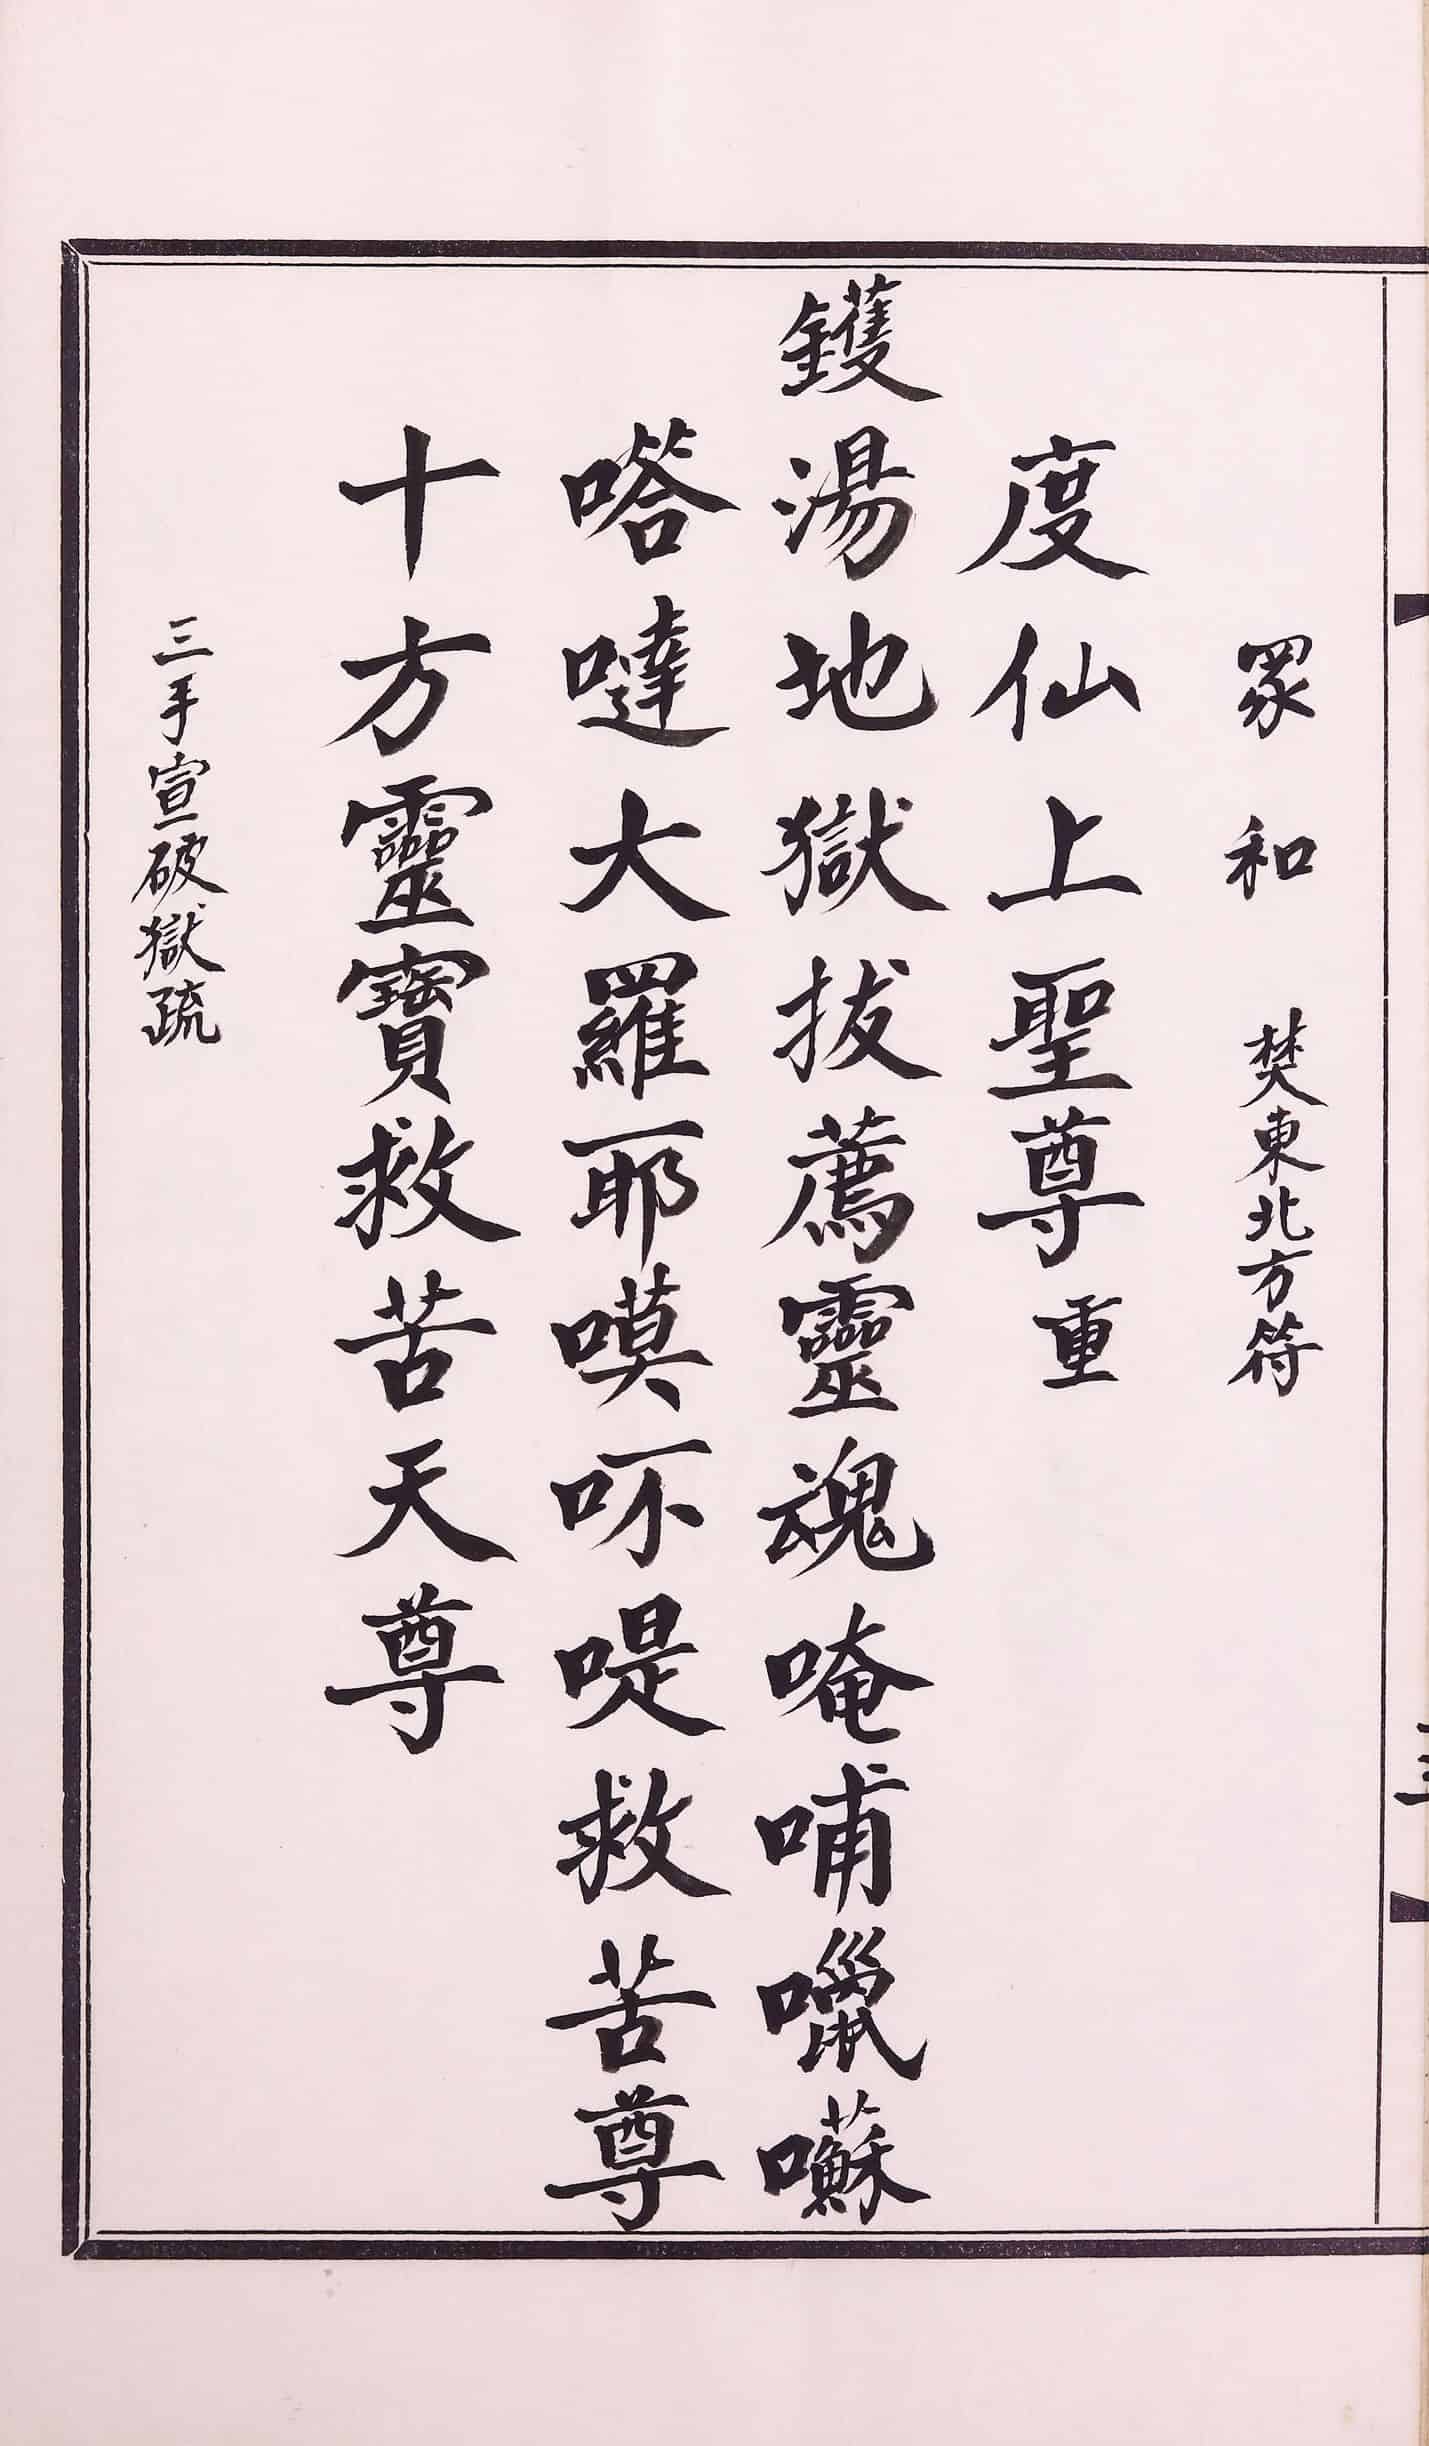 眾和 焚東北方符
度仙上聖尊重
鑊湯地獄拔薦靈魂唵哺囒囌
嗒噠大羅耶嘆吥喓救苦尊
十方靈寶救苦天尊
三手宣破獄疏